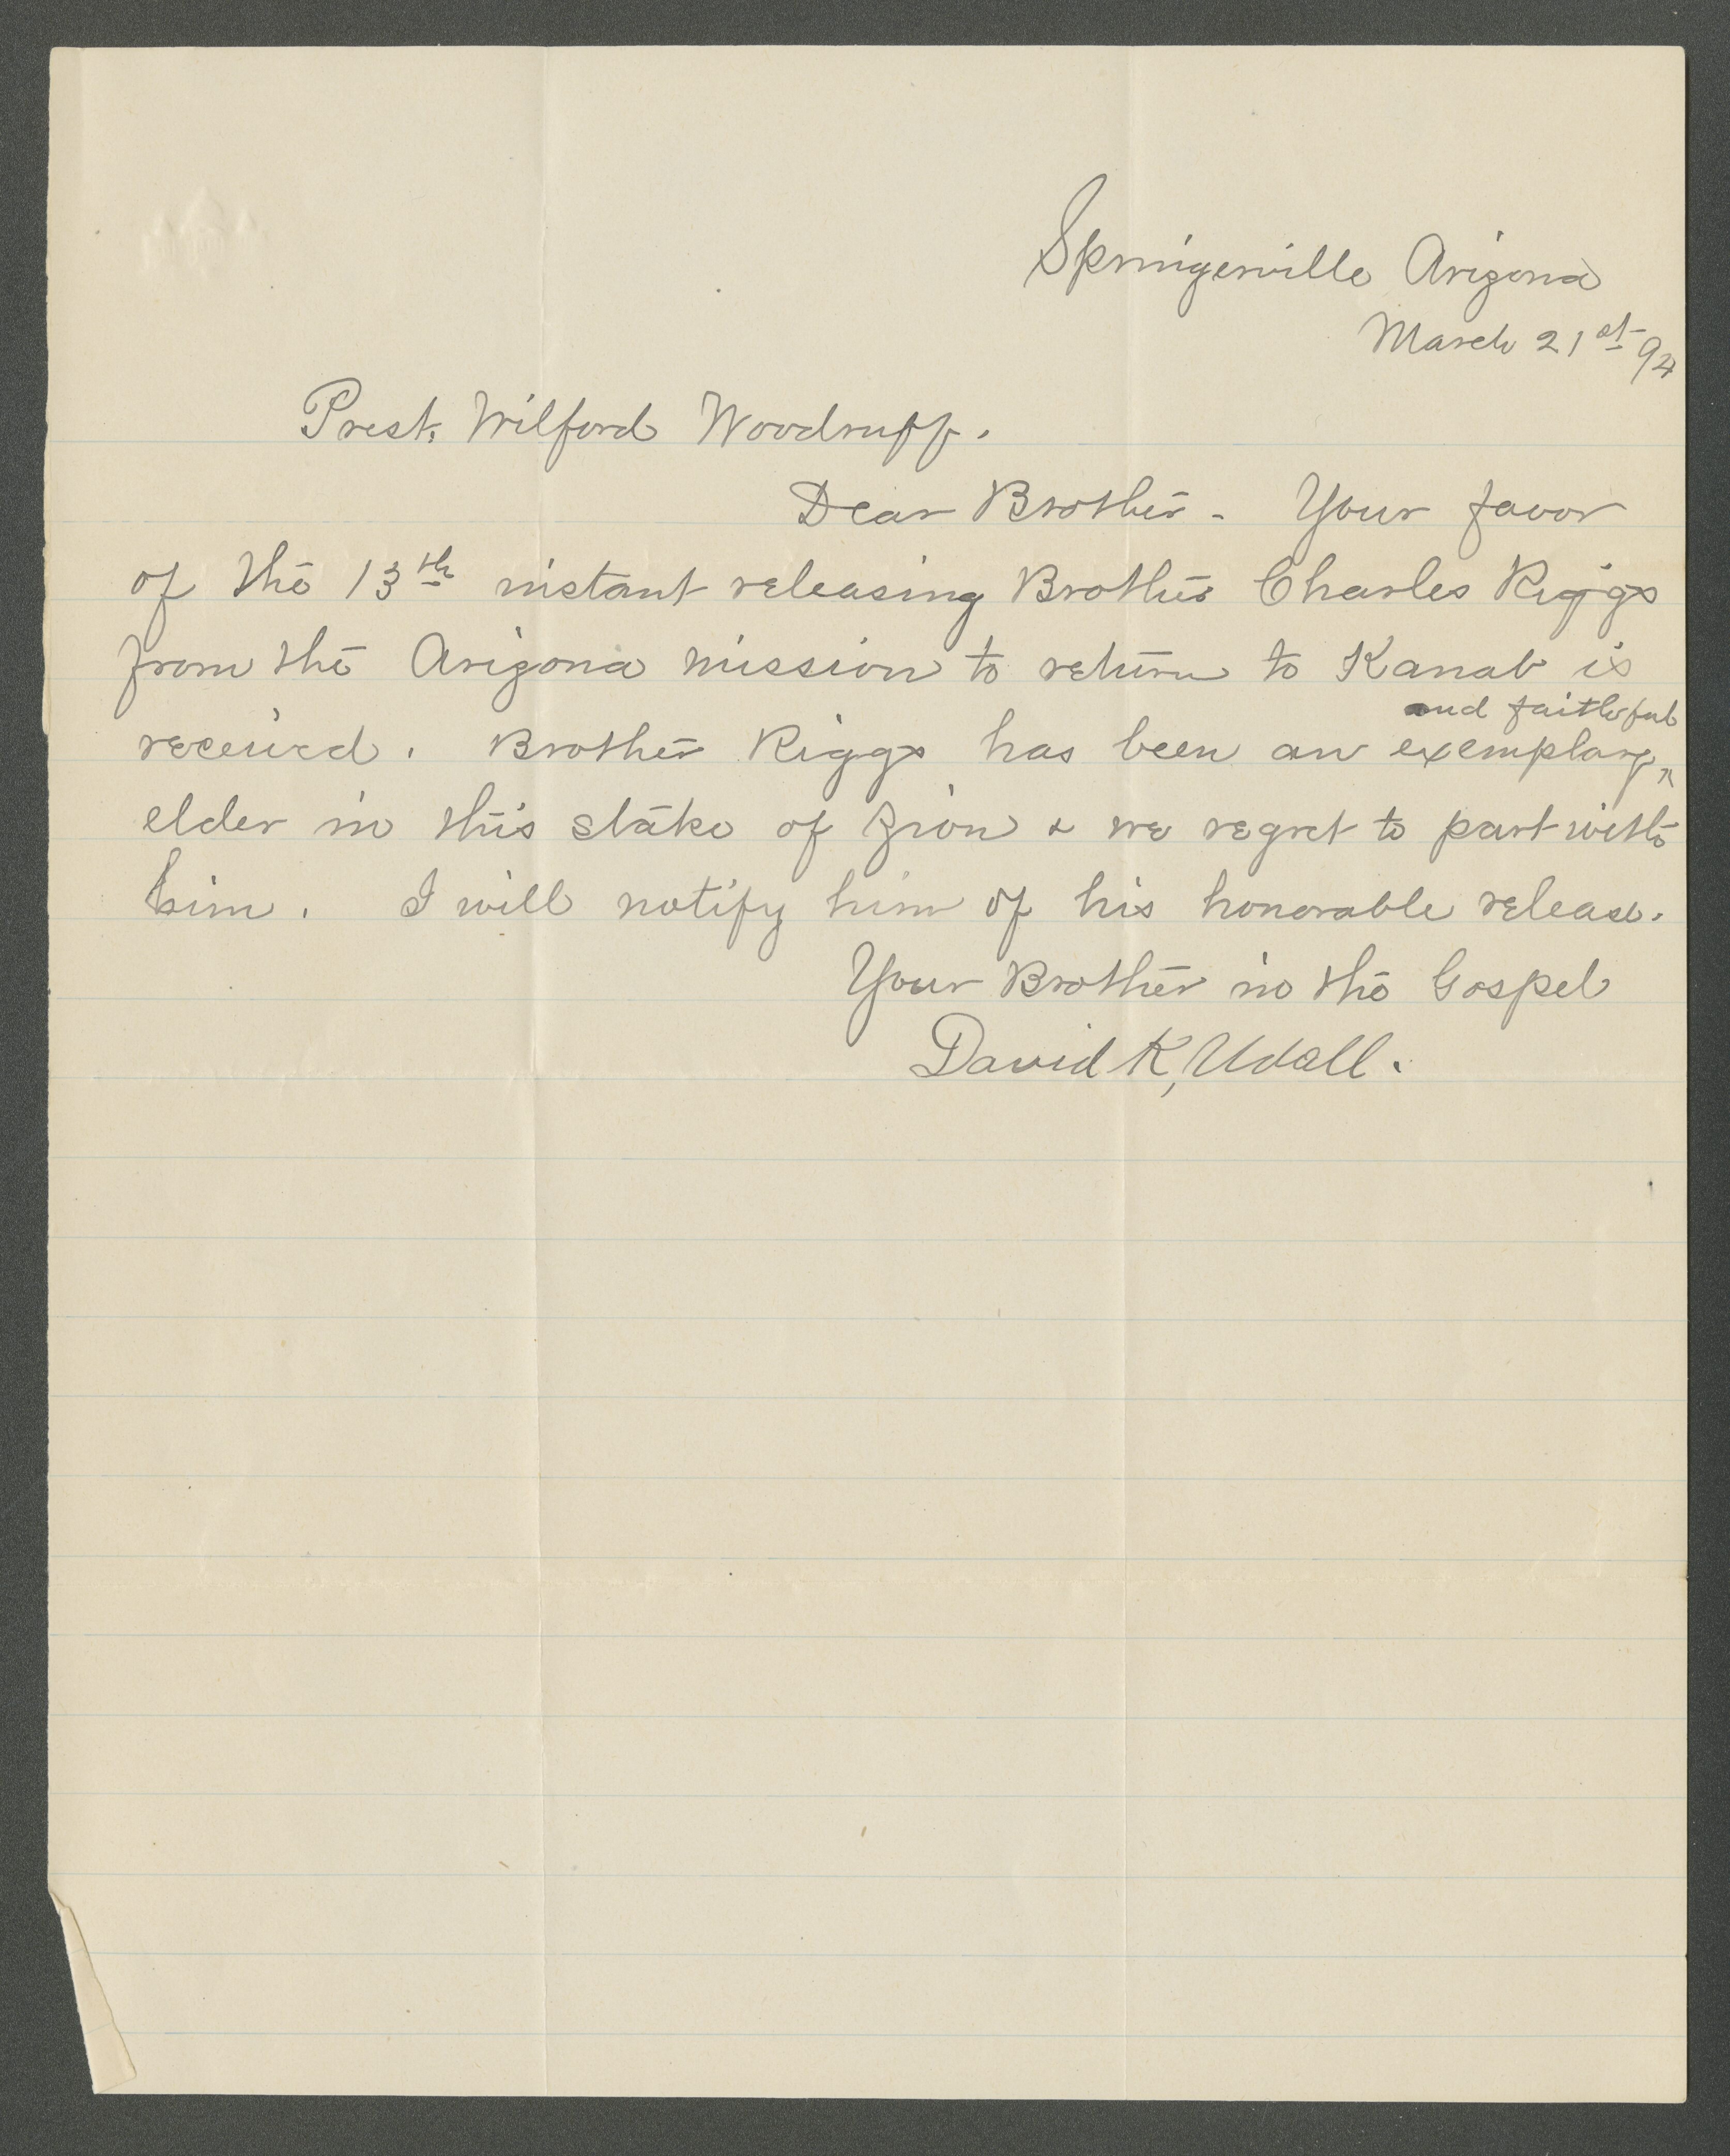 Springerville Arizona
March 21st 94
Prest. Wilford Woodruff.
Dear Brother - Your favor
of the 13th instant releasing Brother Charles Riggs
from the Arizona mission to return to Kanab is
and faithful
received. Brother Riggs has been an exemplary ^
elder in this stake of Zion & we regret to part with
him. I will notify him of his honorable release.
Your Brother in the Gospel
David K, Udall.